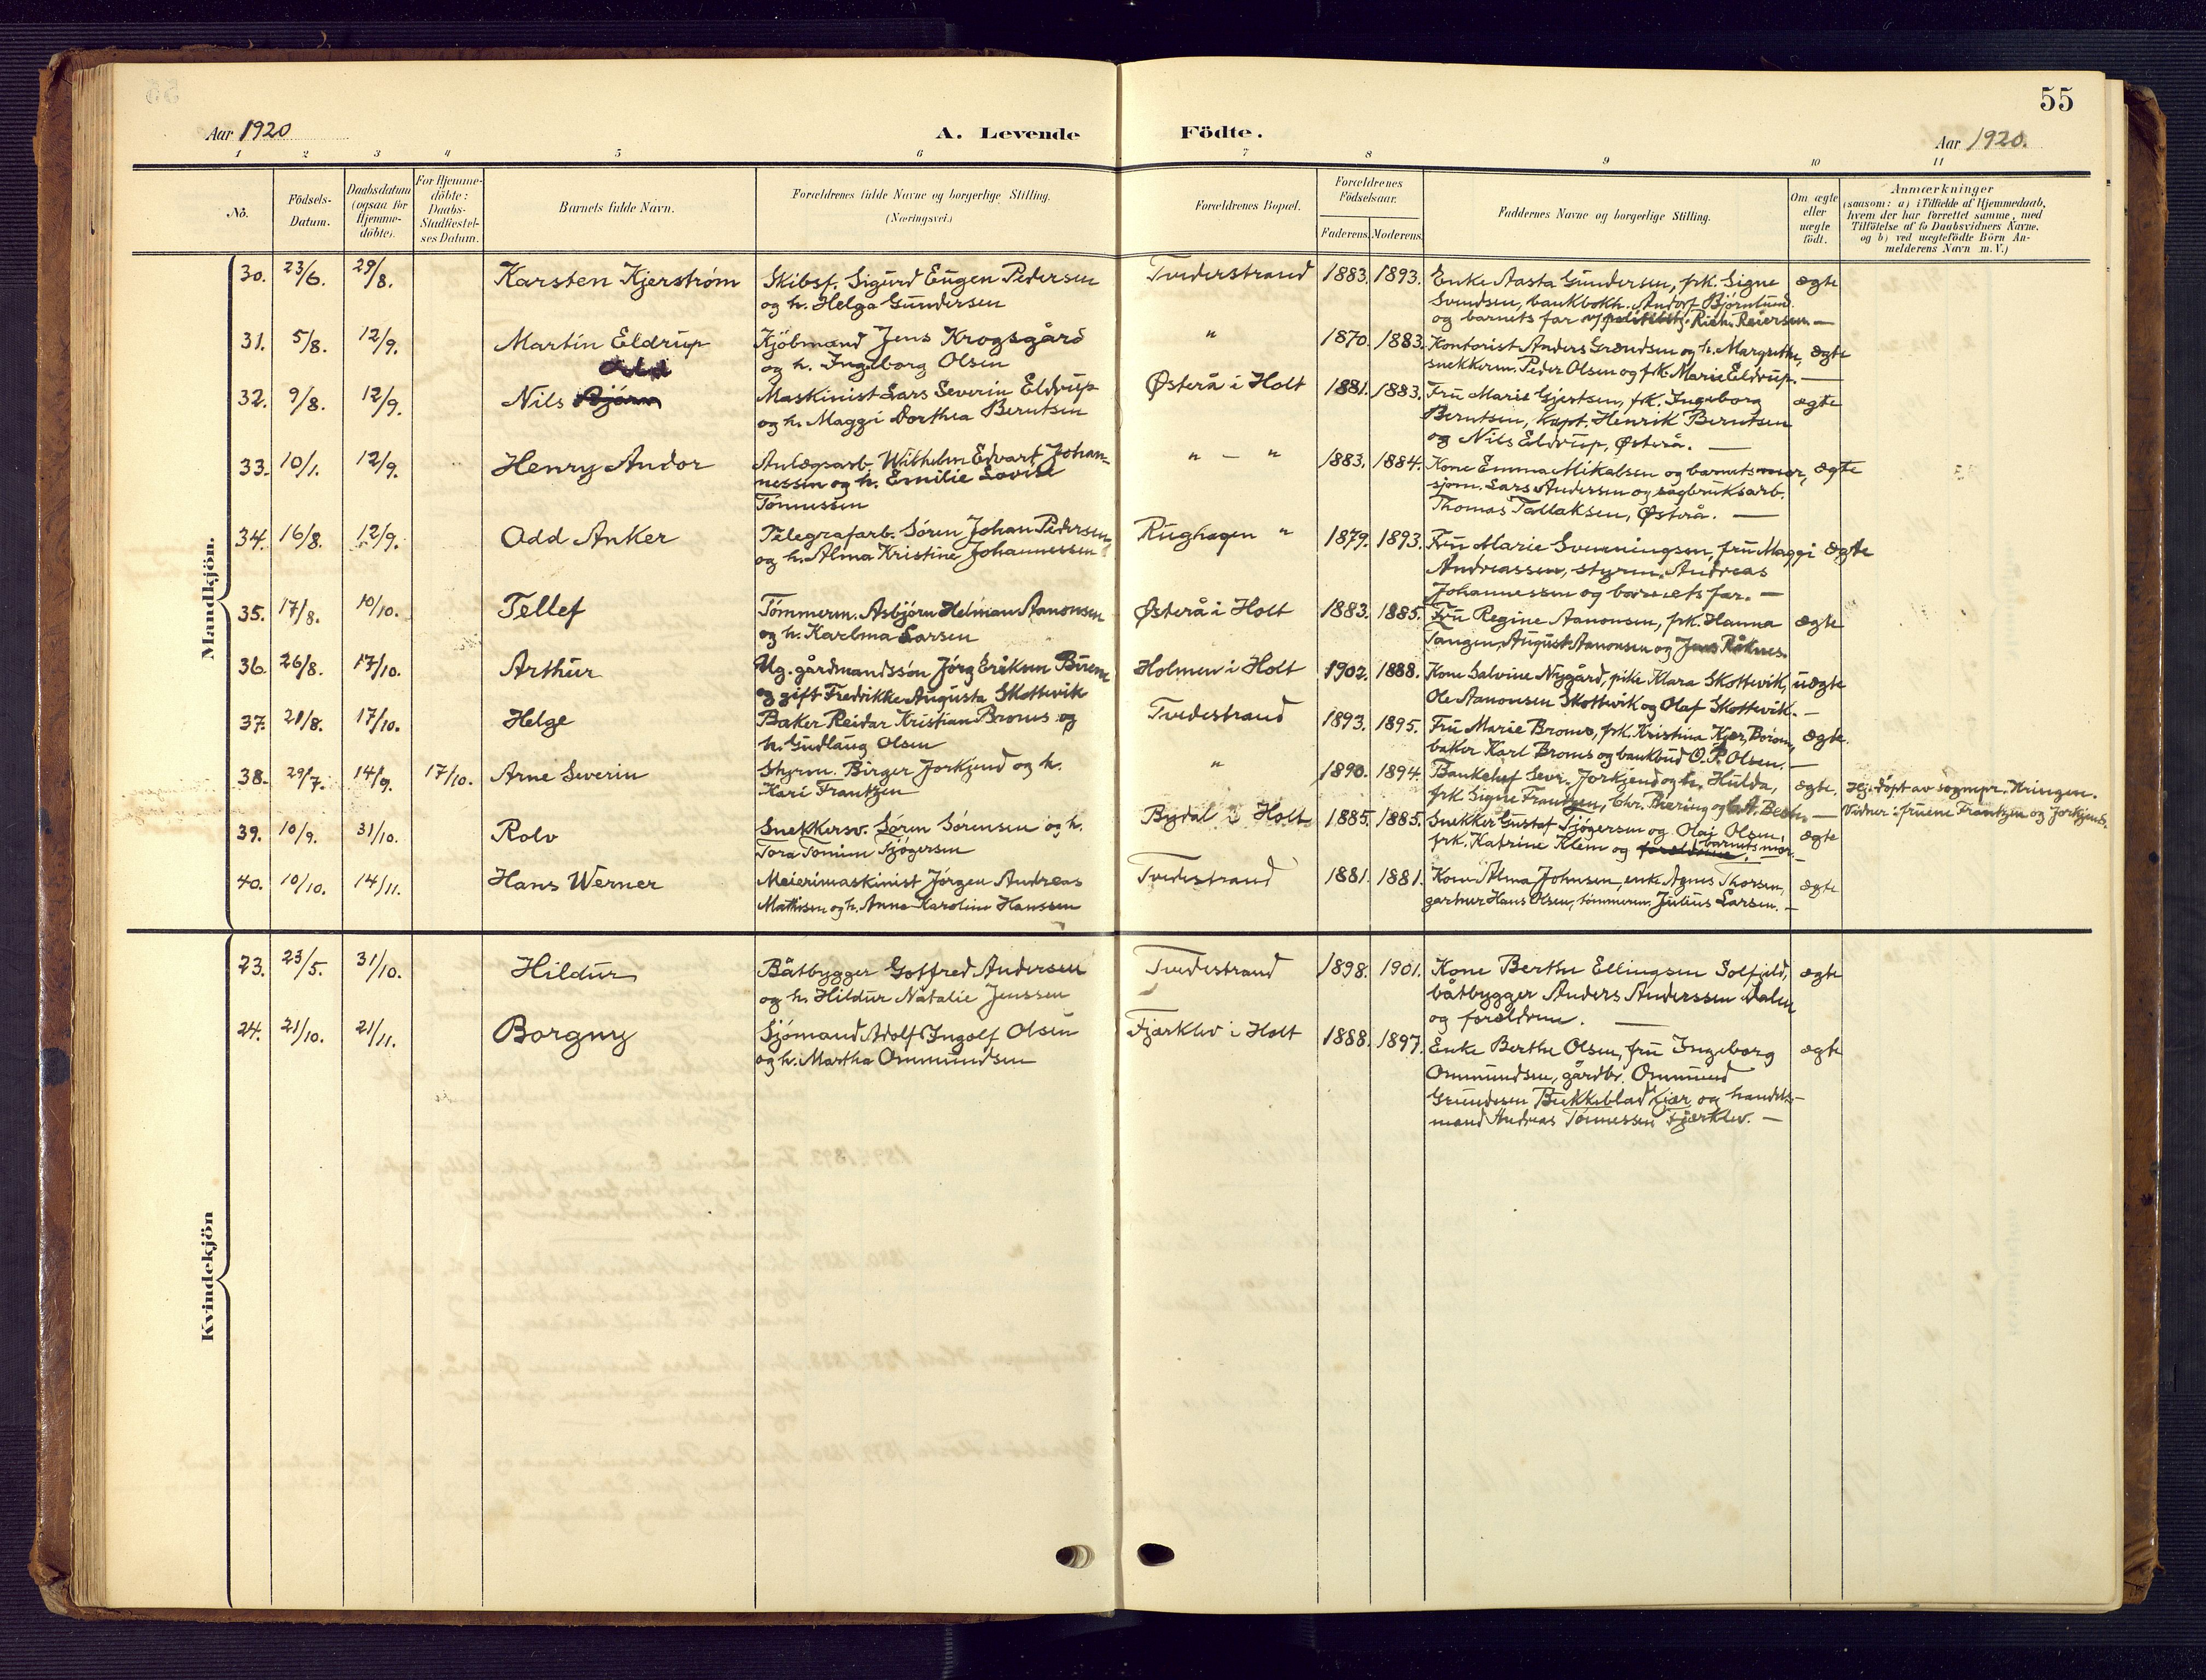 55
Aar 1920
A. Levende Födte.
Aar 1920.
1 2 3 4 5 6 7 8 9 10 11
No.
Födsels-
Datum.
Daabsdatum
(ogsaa for
Hjemme-
döbte).
For Hjemme-
döbte:
Daabs-
Stadfæstel-
ses Datum.
Barnets fulde Navn.
Forældrenes fulde Navne og borgerlige Stilling.
(Næringsvei.)
Forældrenes Bopæl.
Forældrenes
Födselsaar.
Faderens. Moderens.
Faddernes Navne og borgerlige Stilling.
Om ægte
eller
uægte
födt.
Anmærkninger
(saasom: a) i Tilfælde af Hjemmedaab,
hvem der har forrettet samme, med
Tilföielse af to Daabsvidners Navne.
og b) ved uægtefödte Börn An-
melderens Navn m. V.)
Mandkjön.
30. 23/6. 29/8. Karsten Kjerstrøm
Skibsf. Sigurd Eugen Pedersen
og h. Helga Gundersen
Tvedestrand 1883. 1893.
Enke Aasta Gundersen, frk. Signe
Svendsen, bankbokh. Andorf Bjørnlund
og barnets far Rich. Reiersen. —
ægte
31. 5/8. 12/9. Martin Eldrup
Kjöbmand Jens Krogsgård
og h. Ingeborg Olsen
" 1870. 1883.
Kontorist Anders Grændsen og h. Margrethe,
snekkerm. Peder Olsen og frk. Marie Eldrup. —
ægte
32. 9/8. 12/9. Nils Bjørn
Maskinist Lars Severin Eldrup
og h. Maggi Dorthea Berntsen
Østerå i Holt 1881. 1883.
Fru Marie Gjertsen, frk. Ingeborg
Berntsen, kapt. Henrik Berntsen
og Nils Eldrup, Østerå. —
ægte
33. 10/1. 12/9. Henry Andor
Anlægsarb. Wilhelm Edvart Johan-
nessen og h. Emilie Lovise
Tønnessen
" — " 1883. 1884.
Kone Emma Mikalsen og barnets mor,
sjøm. Lars Andersen og sagbruksarb.
Thomas Tallaksen, Østerå. —
ægte
34. 16/8. 12/9. Odd Anker
Telegrafarb. Søren Johan Pedersen,
og h. Alma Kristine Johannessen
Rughagen " 1879. 1893.
Fru Marie Svenningsen, fru Maggi
Andreassen, styrm. Andreas
Johannessen og barnets far. —
ægte
35. 17/8. 10/10. Tellef
Tømmerm. Asbjørn Helman Aanonsen
og h. Karlma Larsen
Østerå i Holt 1883. 1885.
Fru Regine Aanonsen, frk. Hanna
Tangen, August Aanonsen og Jens Røknes.
ægte
36. 26/8. 17/10. Arthur
Ug. gårdmandssøn Jørg Eriksen Buene
og gift Fredrikke Augusta Skottevik
Holmen i Holt 1902. 1888.
Kone Salvine Nygård, pike Klara Skottevik,
Ole Aanonsen Skottevik og Olaf Skottevik. —
uægte
37. 21/8. 17/10. Helge
Baker Reidar Kristian Broms og
h. Gudlaug Olsen
Tvedestrand 1893. 1895.
Fru Marie Broms, frk. Kristina Kjær,
baker Karl Broms og bankbud O. P. Olsen. —
ægte.
38. 29/7. 14/9. 17/10. Arne Severin
Styrm. Birger Jorkjend og h.
Kari Frantzen
" 1890. 1894.
Bankchef Sevr. Jorkjend og h. Hulda,
frk. Signe Frantzen, Chr. Thering og —
ægte.
Hj. døpt av sognepr. Kringen.
Vidner: fruene Frantzen og Jorkjend.
39. 10/9. 31/10. Rolv
Snekkersv. Søren Sørensen og h.
Tora Tomine Sjøgersen
Bydal i Holt 1885. 1885.
Snekker Gustaf Sjøgersen og Olai Olsen,
frk. Katrine Klem og forældrene barnets mor. —
ægte
40. 10/10. 14/11. Hans Werner
Meierimaskinist Jørgen Andreas
Mathisen og h. Anna Karoline Hanssen
Tvedestrand 1881. 1881.
Kone Alma Johnsen, enke Agnes Thorsen,
gartner Hans Olsen, tømmerm. Julius Larsen. —
ægte
Kvindekjön
23. 23/5. 31/10. Hildur
Båtbygger Goffred Andersen
og h. Hildur Natalie Jenssen
Tvedestrand 1898. 1901.
Kone Berthe Ellingsen Solfjeld,
båtbygger Anders Anderssen Dalen
og forældrene. —
ægte
24. 21/10. 21/11. Borgny
Sjömand Adolf Ingolf Olsen
og h. Martha Ommundsen
Fjærklev i Holt 1888. 1897.
Enke Berthe Olsen, fru Ingeborg
Ommundsen, gårdbr. Ommund
Grundesen Bukkeblad kjær og handels-
mand Andreas Tønnessen Fjærklev. —
ægte